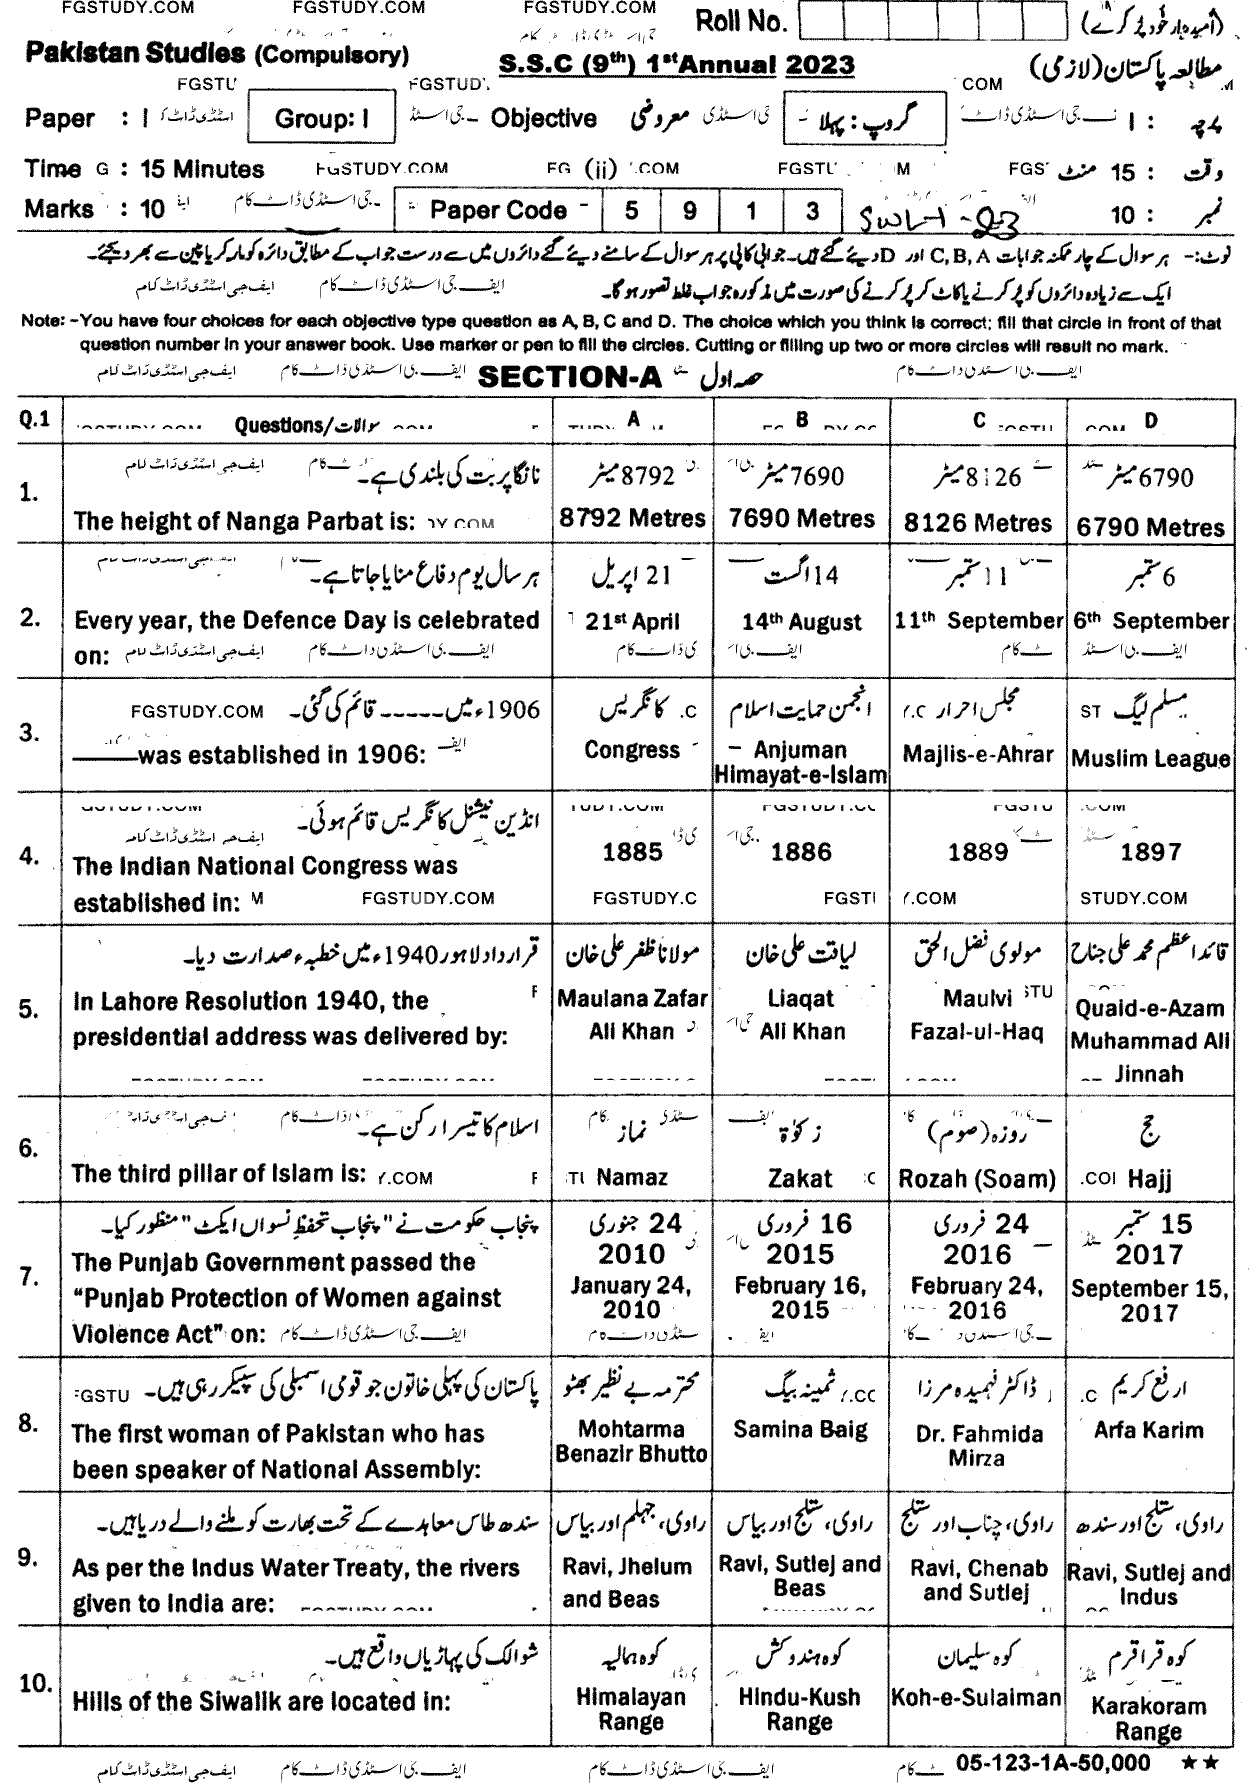 FGSTUDY.COM FGSTUDY.COM FGSTUDY.COM Roll No. (امیدوار خود پُر کرے)
Pakistan Studies (Compulsory) S.S.C (9th) 1st Annual 2023 مطالعہ پاکستان (لازمی)
Paper : I Group: I Objective معروضی گروپ : پہلا پرچہ : I
Time : 15 Minutes FGSTUDY.COM (ii) وقت : 15 منٹ
Marks : 10 Paper Code 5 9 1 3 نمبر : 10
نوٹ:- ہر سوال کے چار ممکنہ جوابات A ,B ,C اور D دیئے گئے ہیں۔ جوابی کاپی پر ہر سوال کے سامنے دیئے گئے دائروں میں سے درست جواب کے مطابق دائرہ کو مارکر یا پین سے بھر دیجئے۔
ایک سے زیادہ دائروں کو پُر کرنے یا کاٹ کر پُر کرنے کی صورت میں مذکورہ جواب غلط تصور ہوگا۔
Note: -You have four choices for each objective type question as A, B, C and D. The choice which you think is correct; fill that circle in front of that
question number in your answer book. Use marker or pen to fill the circles. Cutting or filling up two or more circles will result no mark.
SECTION-A حصہ اول
Q.1 Questions/سوالات A B C D
1. نانگا پربت کی بلندی ہے۔ 8792میٹر 7690میٹر 8126میٹر 6790میٹر
The height of Nanga Parbat is: 8792 Metres 7690 Metres 8126 Metres 6790 Metres
2. ہر سال یوم دفاع منایا جاتا ہے۔ 21 اپریل 14 اگست 11 ستمبر 6 ستمبر
Every year, the Defence Day is celebrated 21st April 14th August 11th September 6th September
on:
3. 1906ء میں ----- قائم کی گئی۔ کانگریس انجمن حمایت اسلام مجلس احرار مسلم لیگ
FGSTUDY.COM
____was established in 1906: Congress Anjuman Majlis-e-Ahrar Muslim League
Himayat-e-Islam
4. انڈین نیشنل کانگریس قائم ہوئی۔
The Indian National Congress was 1885 1886 1889 1897
established in: FGSTUDY.COM
5. قرارداد لاہور 1940ء میں خطبہء صدارت دیا۔ مولانا ظفر علی خان لیاقت علی خان مولوی فضل الحق قائداعظم محمد علی جناح
In Lahore Resolution 1940, the Maulana Zafar Liaqat Maulvi Quaid-e-Azam
presidential address was delivered by: Ali Khan Ali Khan Fazal-ul-Haq Muhammad Ali
Jinnah
6. اسلام کا تیسرا رکن ہے۔ نماز زکوٰۃ روزہ (صوم) حج
The third pillar of Islam is: Namaz Zakat Rozah (Soam) Hajj
7. پنجاب حکومت نے "پنجاب تحفظِ نسواں ایکٹ" منظور کیا۔ 24 جنوری 16 فروری 24 فروری 15 ستمبر
2010 2015 2016 2017
The Punjab Government passed the January 24, February 16, February 24, September 15,
"Punjab Protection of Women against 2010 2015 2016 2017
Violence Act" on:
8. پاکستان کی پہلی خاتون جو قومی اسمبلی کی سپیکر رہی ہیں۔ محترمہ بے نظیر بھٹو ثمینہ بیگ ڈاکٹر فہمیدہ مرزا ارفع کریم
The first woman of Pakistan who has Mohtarma Samina Baig Dr. Fahmida Arfa Karim
been speaker of National Assembly: Benazir Bhutto Mirza
9. سندھ طاس معاہدے کے تحت بھارت کو ملنے والے دریا ہیں۔ راوی، جہلم اور بیاس راوی، ستلج اور بیاس راوی، چناب اور ستلج راوی، ستلج اور سندھ
As per the Indus Water Treaty, the rivers Ravi, Jhelum Ravi, Sutlej and Ravi, Chenab Ravi, Sutlej and
given to India are: and Beas Beas and Sutlej Indus
10. شوالک کی پہاڑیاں واقع ہیں۔ کوہ ہمالیہ کوہ ہندوکش کوہ سلیمان کوہ قراقرم
Hills of the Siwalik are located in: Himalayan Hindu-Kush Koh-e-Sulaiman Karakoram
Range Range Range
05-123-1A-50,000 ★★